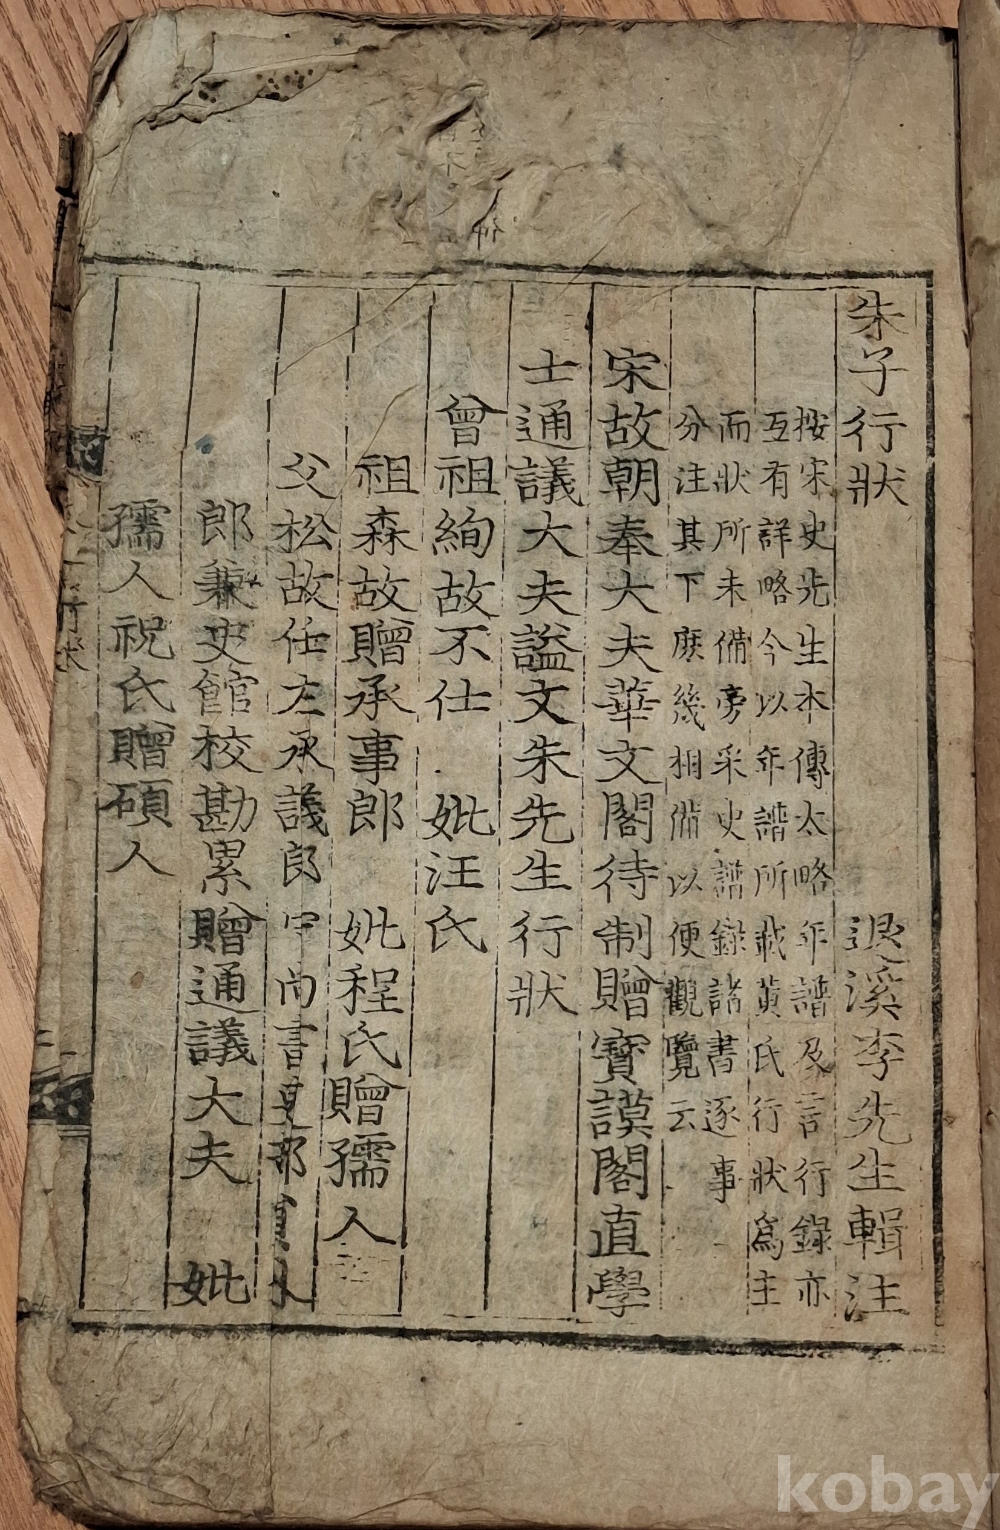 朱子行狀 退溪李先生輯注
按宋史先生本傳太略年譜及言行錄亦
互有詳略今以年譜所載黃氏行狀爲主
而狀所未備旁采史譜錄諸書逐事
分注其下庶幾相備以便觀覽云
宋故朝奉大夫華文閣待制贈寶謨閣直學
士通議大夫諡文朱先生行狀
曾祖絢故不仕 妣汪氏
祖森故贈承事郎 妣程氏贈孺人
父松故任左承議郎守尚書吏部員外
郎兼史館校勘累贈通議大夫 妣
孺人祝氏贈碩人
kobay